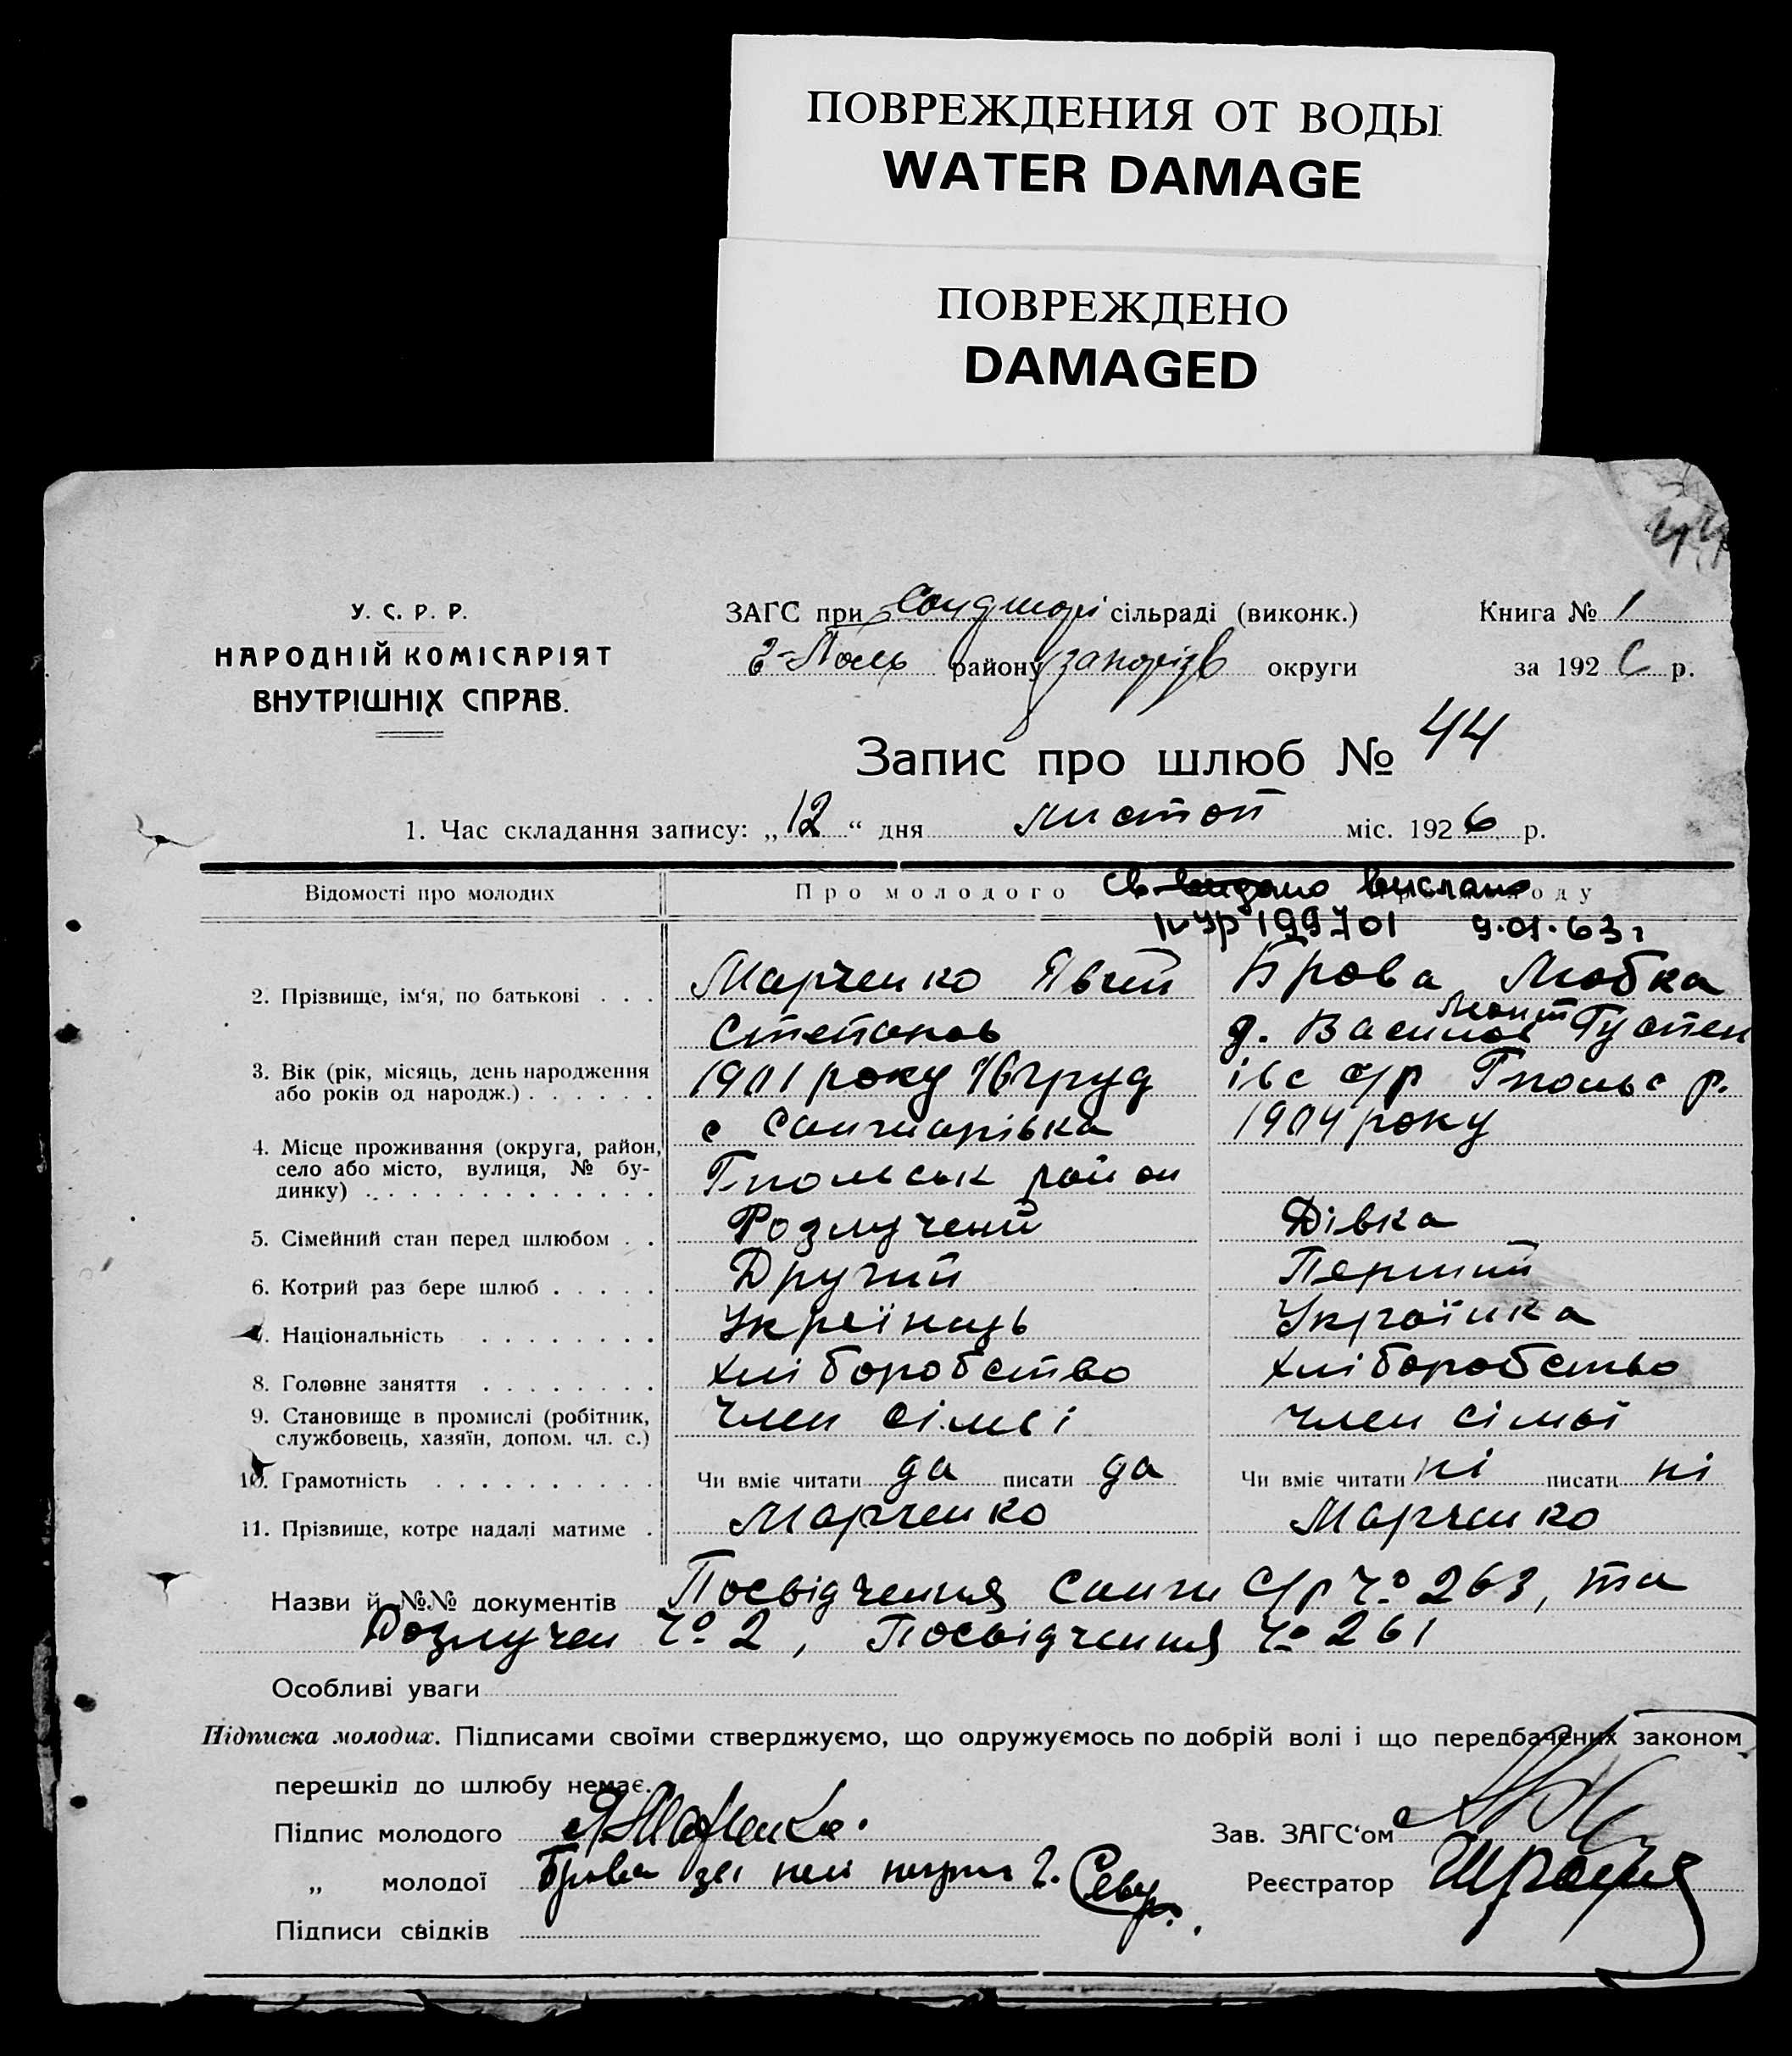 ПОВРЕЖДЕНИЯ ОТ ВОДЫ
WATER DAMAGE
ПОВРЕЖДЕНО
DAMAGED
44
У. С. Р. Р.
НАРОДНІЙ КОМІСАРІЯТ
ВНУТРІШНІХ СПРАВ.
ЗАГС при сільраді (виконк.)
Книга № 1
району округи
за 1926 р.
Запис про шлюб № 44
1. Час складання запису: „12“ дня листоп міс. 1926 р.
Відомості про молодих
Про молодого
св. видано вислано
199701 9.01.63 г
2. Прізвище, ім'я, по батькові . . .
Марченко Явген
Степанов
Брова Любка
д. Василов
3. Вік (рік, місяць, день народження або років од народж.) . . . . . .
1901 року 16 груд
с/р Гпольс р.
1904 року
4. Місце проживання (округа, район, село або місто, вулиця, № будинку) . . . . . . . . . . . . .
с Санжарівка
Гпольськ район
5. Сімейний стан перед шлюбом . .
Розлучений
Дівка
6. Котрий раз бере шлюб . . . . .
Другий
Перший
7. Національність . . . . . . . .
Українець
Українка
8. Головне заняття . . . . . . . .
хліборобство
хліборобство
9. Становище в промислі (робітник, службовець, хазяїн, допом. чл. с.)
член сімьі
член сімьї
10. Грамотність . . . . . . . . . .
Чи вміє читати да писати да
Чи вміє читати ні писати ні
11. Прізвище, котре надалі матиме .
Марченко
Марченко
Назви й №№ документів Посвідчення Санж С/р Чо 263, та
Розлучен Чо 2, Посвідчення Чо 261
Особливі уваги
Підписка молодих. Підписами своїми стверджуємо, що одружуємось по добрій волі і що передбачених законом
перешкід до шлюбу немає.
Підпис молодого
Зав. ЗАГС'ом
„ молодої Брова
Реєстратор
Підписи свідків